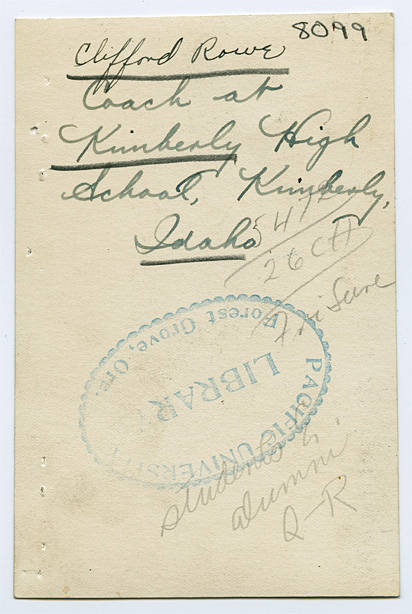 8099
Clifford Rowe
Coach at
Kimberly High
School, Kimberly,
Idaho
PACIFIC UNIVERSITY
LIBRARY
Forest Grove, Ore.
Students &
alumni
Q-R